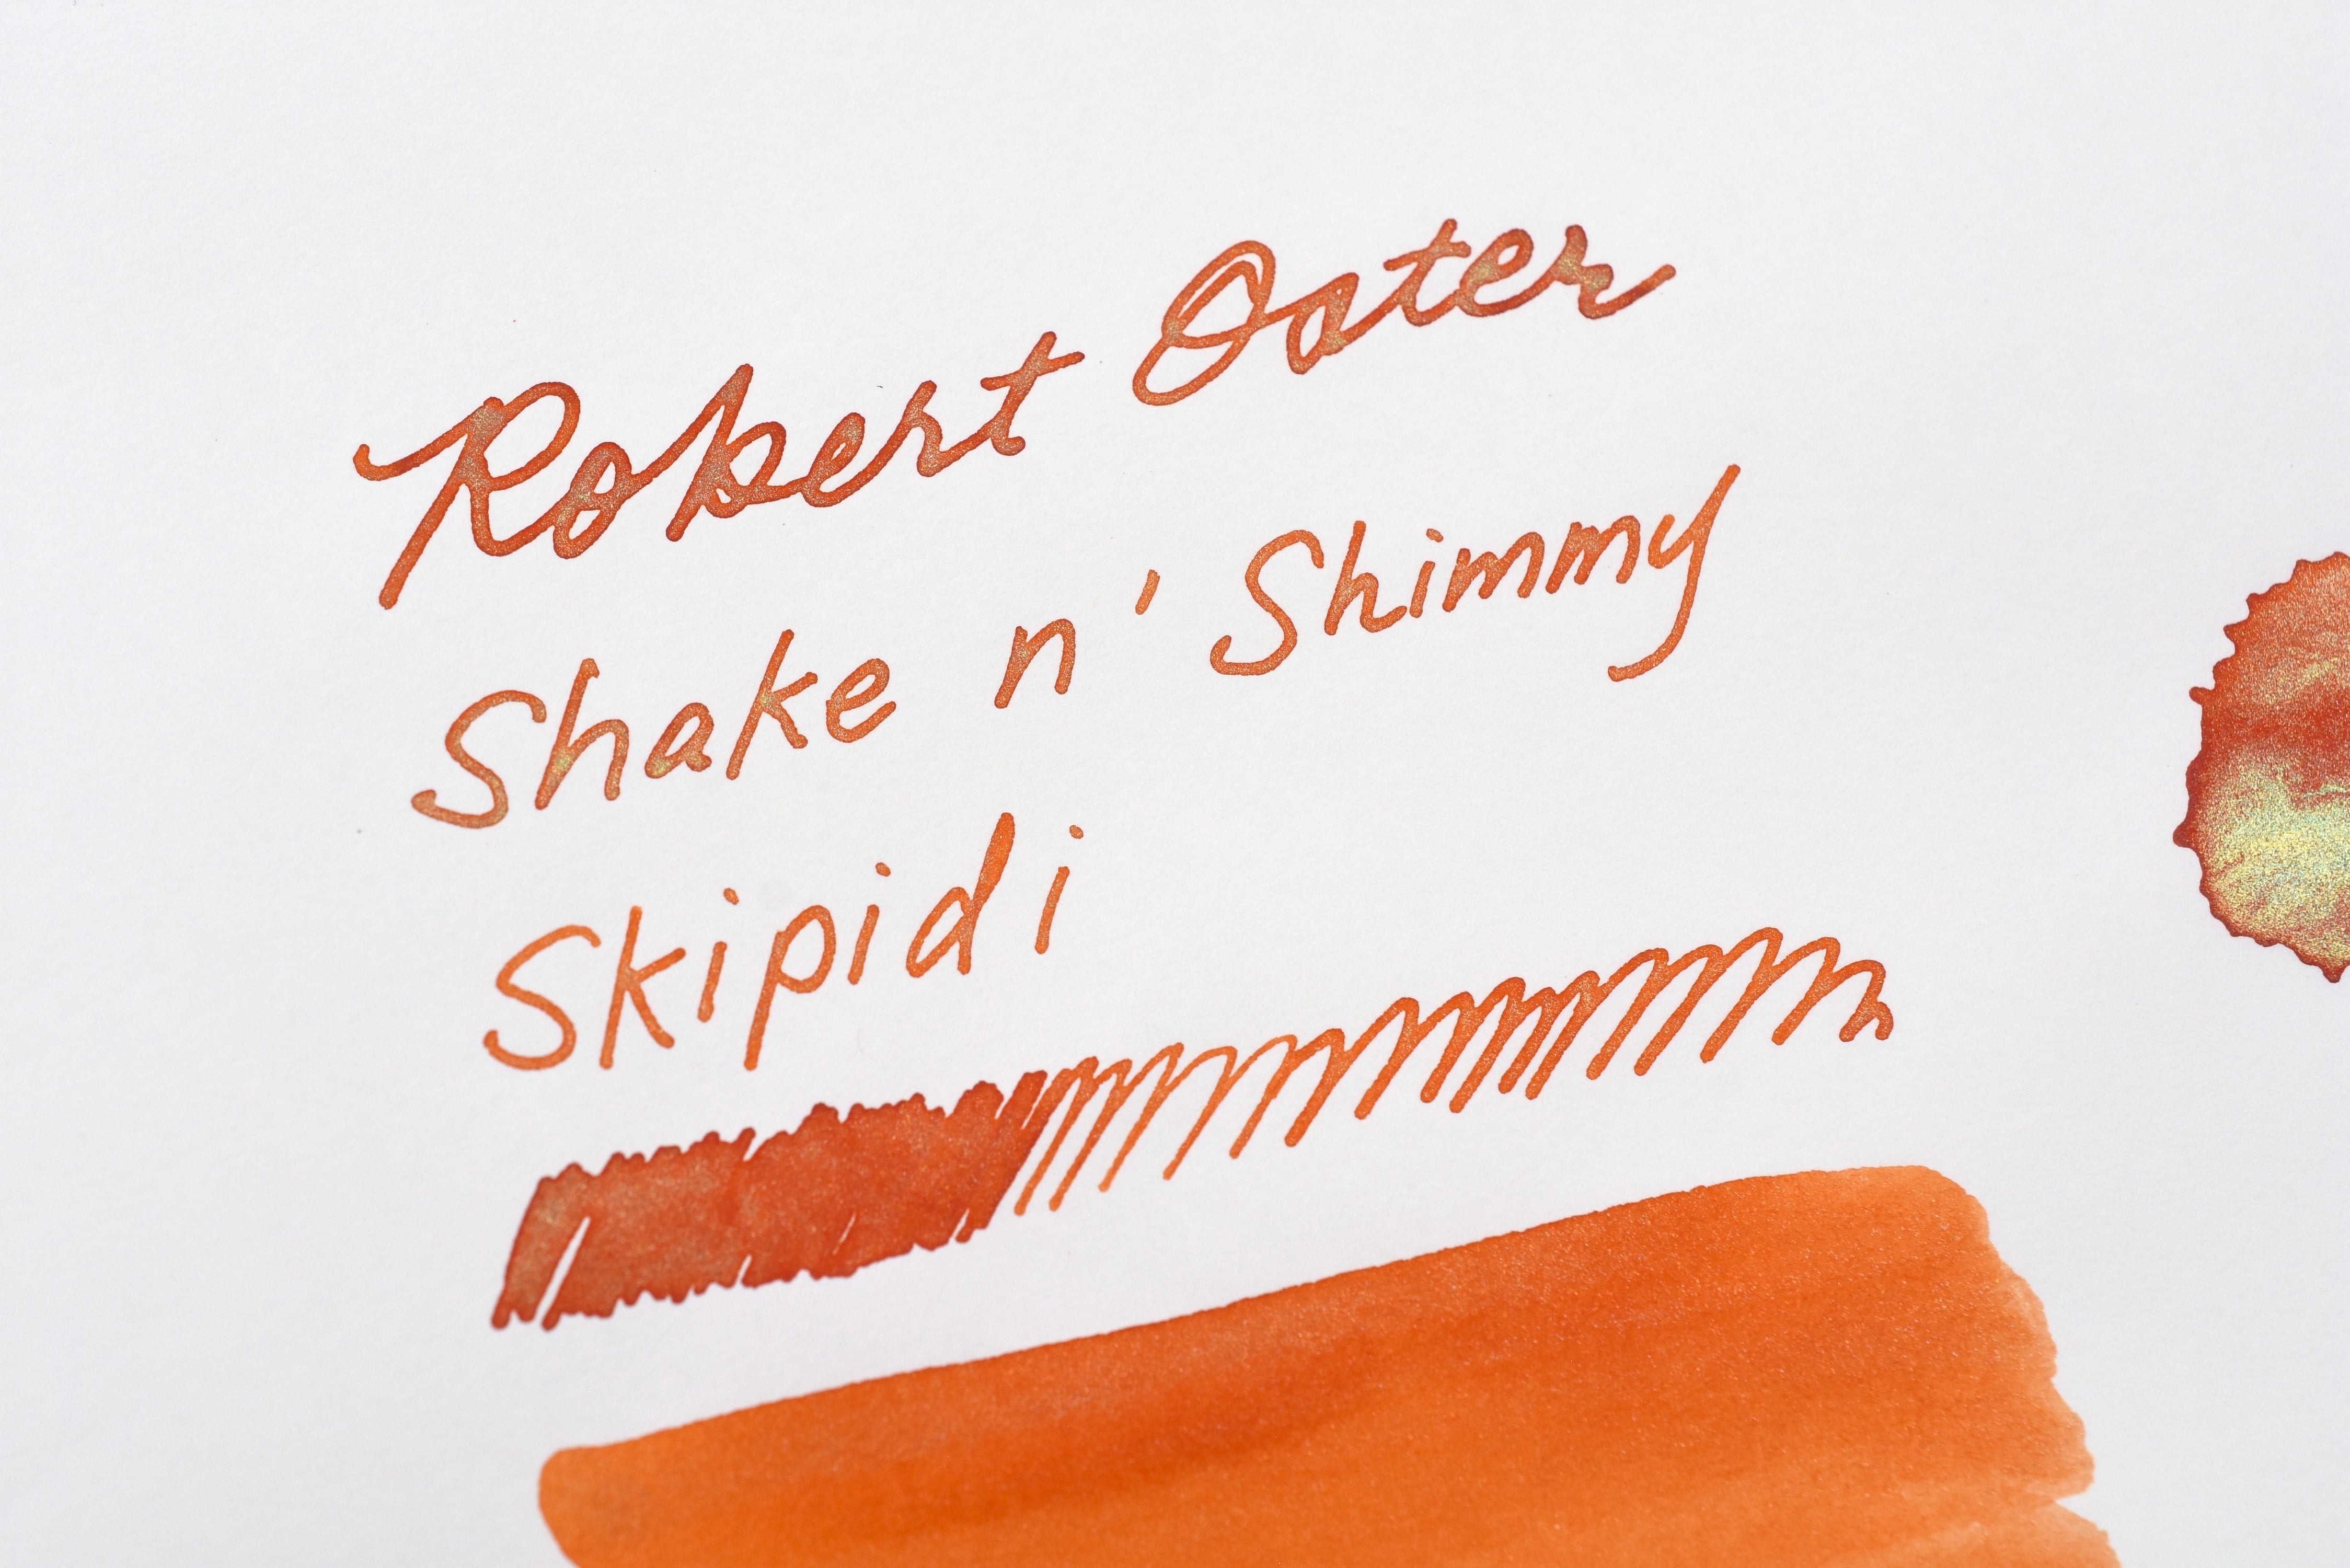 Robert Oster
Shake n' Shimmy
Skipidi